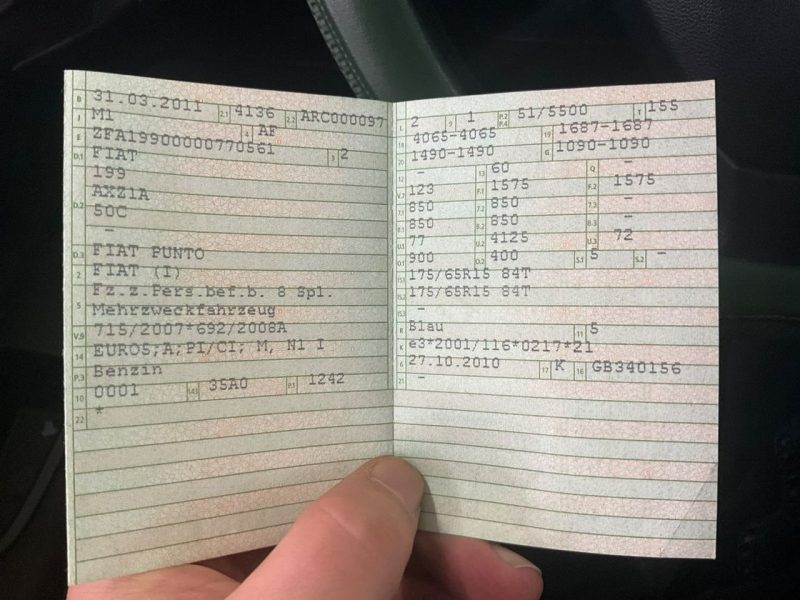 B 31.03.2011 2.1 4136 2.2 ARC000097
J M1 4 AF
E ZFA19900000770561 3 2
D.1 FIAT
199
D.2 AXZ1A
50C
-
D.3 FIAT PUNTO
2 FIAT (I)
5 Fz.z.Pers.bef.b. 8 Spl.
Mehrzweckfahrzeug
V.9 715/2007*692/2008A
14 EURO5;A;PI/CI; M, N1 I
P.3 Benzin
10 0001 14.1 35A0 P.1 1242
22 *
L 2 9 1 P.2 P.4 51/5500 T 155
18 4065-4065 19 1687-1687
20 1490-1490 G 1090-1090
12 - 13 60 Q -
V.7 123 F.1 1575 F.2 1575
7.1 850 7.2 850 7.3 -
8.1 850 8.2 850 8.3 -
U.1 77 U.2 4125 U.3 72
O.1 900 O.2 400 S.1 5 S.2 -
15.1 175/65R15 84T
15.2 175/65R15 84T
15.3 -
R Blau 11 5
K e3*2001/116*0217*21
6 27.10.2010 17 K 16 GB340156
21 -